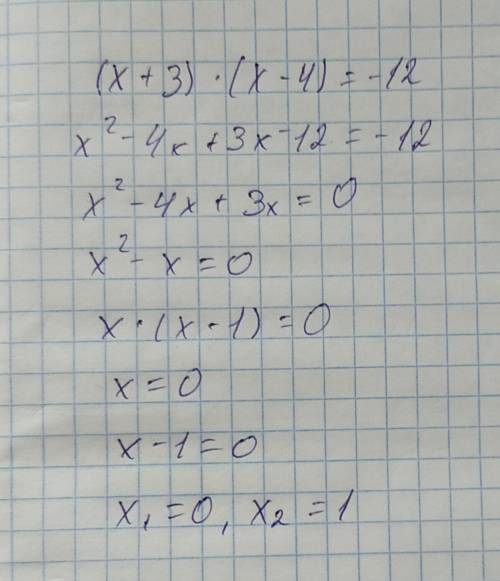 (x + 3) · (x - 4) = -12
x² - 4x + 3x - 12 = -12
x² - 4x + 3x = 0
x² - x = 0
x · (x - 1) = 0
x = 0
x - 1 = 0
x₁ = 0, x₂ = 1